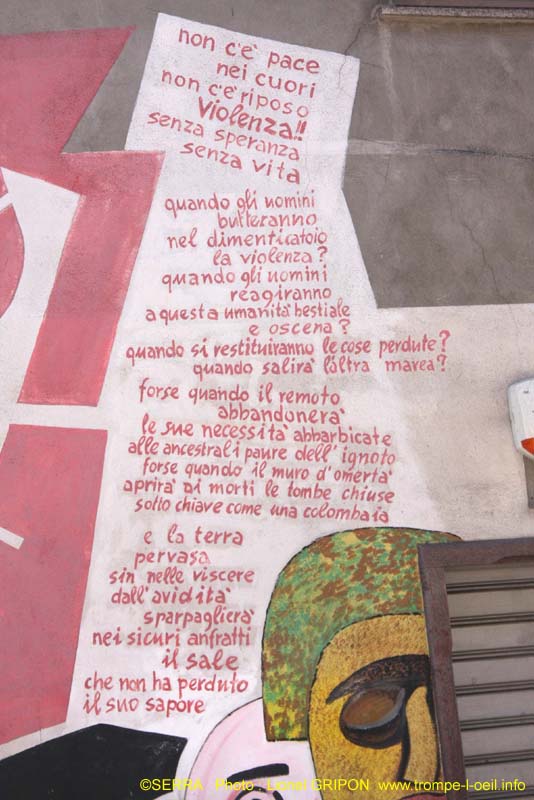 non c'è pace
nei cuori
non c'è riposo
violenza!!
senza speranza
senza vita
quando gli uomini
butteranno
nel dimenticatoio
la violenza?
quando gli uomini
reagiranno
a questa umanità bestiale
e oscena?
quando si restituiranno le cose perdute?
quando salirà l'altra marea?
forse quando il remoto
abbandonerà
le sue necessità abbarbicate
alle ancestrali paure dell'ignoto
forse quando il muro d'omertà
aprirà ai morti le tombe chiuse
sotto chiave come una colombaia
e la terra
pervasa
sin nelle viscere
dall'avidità
sparpaglierà
nei sicuri anfratti
il sale
che non ha perduto
il suo sapore
©SERRA - Photo : Lionel GRIPON www.trompe-l-oeil.info